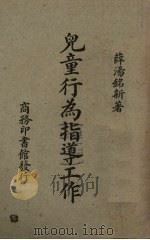 薛濡銘新著
兒童行為指導工作
商務印書館發行